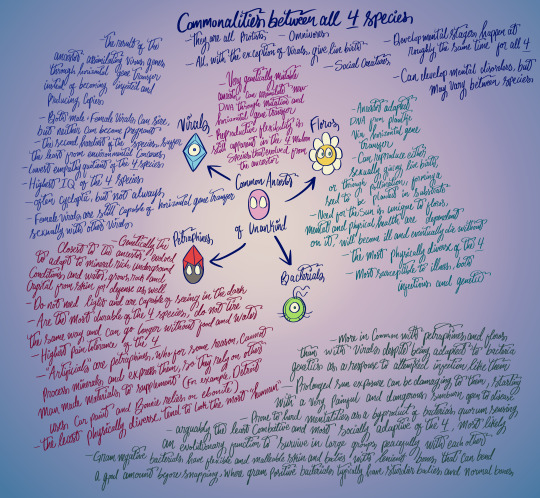 Commonalities between all 4 species
- They are all Protists
- Omnivores
- All, with the exception of Virals, give live birth
- Social Creatures
- Developmental stages happen at
roughly the same time for all 4
- Can develop mental disorders, but
may vary between species
- The result of the
ancestor assimilating virus genes
through horizontal gene transfer
instead of becoming infected and
Producing Copies
- Both male + Female Virals Can sire,
but neither can become pregnant
- the second hardiest of the species, suffer
the least from environmental
- Lowest empathy quotient of the 4 species
- Highest IQ of the 4 species
- often Cycloptic, but not always
- Female Virals are still Capable of horizontal gene transfer
sexually with other Virals
Virals
- Very genetically mutable
ancestor can assimilate new
DNA through mutation and
horizontal gene transfer
- Reproductive flexibility is
still apparent in the 4 main
Species that evolved from
the ancestor
Floros
- Ancestor adapted
DNA from plantlife
Via horizontal gene
transfer
- Can reproduce either
sexually giving live birth,
or through pollination, forming a
seed to be planted in Substrate
- Need for the Sun is unique to floros,
mental and physical health are dependent
on it, will become ill and eventually die without
- the most Physically diverse of the 4
- Most susceptible to illness, both
infectious and genetic
Common Ancestor
of Unankind
Petraphines
- Genetically the
Closest to the ancestor, evolved
to adapt to mineral rich underground
Conditions and water, grows rock and
Crystal from skin for defense as well
- Do not need light and are capable of seeing in the dark
- Are the most durable of the 4 species, do not tire
the same way and can go longer without food and Water
- Highest Pain tolerance of the 4
- "Artificials" are Petraphines, who for some reason, Cannot
Process minerals and express them, so they rely on other
man made materials to supplement (For example, Detroit
uses Car paint and Bowie relies on ebonite)
- the least Physically diverse, tend to look the most "human"
Bacterials
- More in Common with petraphines and floros
than with Virals despite being adapted to bacteria
genetics as a response to attempted infection like them
- Prolonged sun exposure can be damaging to them, starting
with a very Painful and dangerous sunburn open to disease
- Prone to herd mentalities as a byproduct of bacterias quorum sensing
- arguably the least Combative and most socially adaptive of the 4, most likely
an evolutionary function to survive in large groups peacefully with each other
- Gram negative bacterials have flexible and malleable skin and bodies with lenient bones that can bend
a good amount before snapping, where gram Positive bacterials typically have sturdier bodies and normal bones